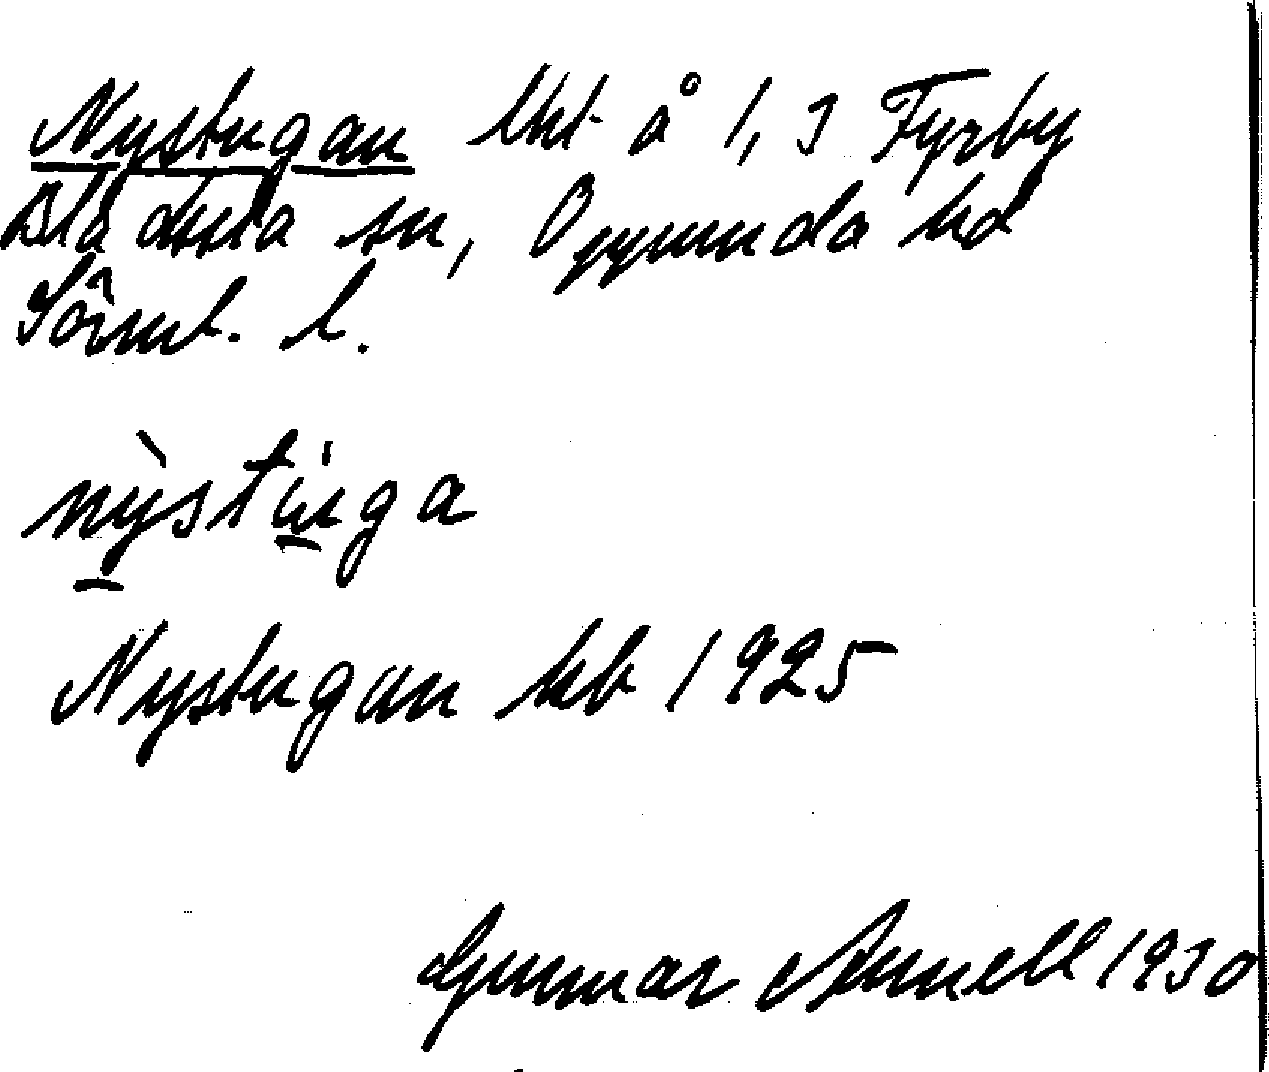 Nystugan lht å 1,3 Fyrby
Blacksta sn, Oppunda hd
Sörml. l.
nỳstu̇ga
Nystugan kb 1925
Gunnar Arnell 1930